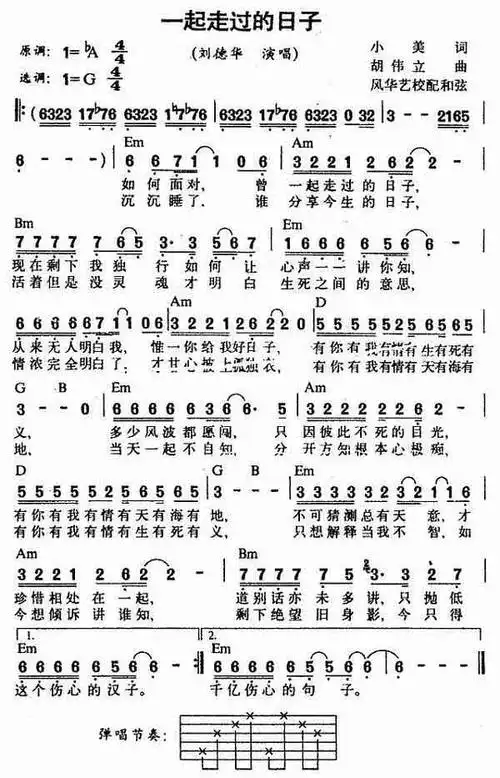 一起走过的日子
原调：1=ᵇA 4/4 (刘德华 演唱) 小 美 词
胡 伟 立 曲
选调：1=G 4/4 风华艺校配和弦
‖: (6323 17ᵇ76 6323 1ᵇ7ᵇ76 | 6323 17ᵇ76 6323 0 32 | 3 - - 2165
Em Am
6 - - -) | 6 6 7 1 1 0 6 | 3 2 2 1 2 6 2 2 - |
如何面对， 曾 一起走过的日子，
沉沉睡了． 谁 分享今生的日子，
Bm Em
7 7 7 7 7 6 5 3· 3 5 6 7 | 1 6 6 6 6 5 6 6 - |
现在剩下我独 行如何让 心声一一讲你知，
活着但是没灵 魂才明白 生死之间的意思，
Am D
6 6 6 6 6 6 7 1 1 0 6 | 3 2 2 1 2 6 2 2 0 | 5 5 5 5 5 5 2 5 6 5 6 5 |
从来无人明白我， 惟一你给我好日子， 有你有我有情有生有死有
情浓完全明白了； 才甘心披上孤独衣， 有你有我有情有天有海有
G B Em Am
3 - - 0 | 6 6 6 6 6 3 6 6· 5 | 3 2 2 2 2 2 6 2 2 - |
义， 多少风波都愿闯， 只 因彼此不死的目光，
地， 当天一起不自知， 分 开方知根本心极痴，
D G B Em
5 5 5 5 5 5 2 5 6 5 6 5 | 3 - - - | 3 3 3 3 3 3 2 3 2 1 1 6 |
有你有我有情有天有海有 地， 不可猜测总有天 意，才
有你有我有情有生有死有 义． 只想解释当我不 智，如
Am Bm
3 2 2 1 2 6 2 2 - | 7 7 7 7 7 5 3· 3 2 7 |
珍惜相处在一起， 道别话亦未多讲，只抛低
今想倾诉讲谁知， 剩下绝望旧身影，今只得
1. 2.
Em Em
6 6 6 6 5 6 6 - :‖ 6 6 6 6 5 6 6 | 6 - - - ‖
这个伤心的汉子。 千亿伤心的句 子。
弹唱节奏：